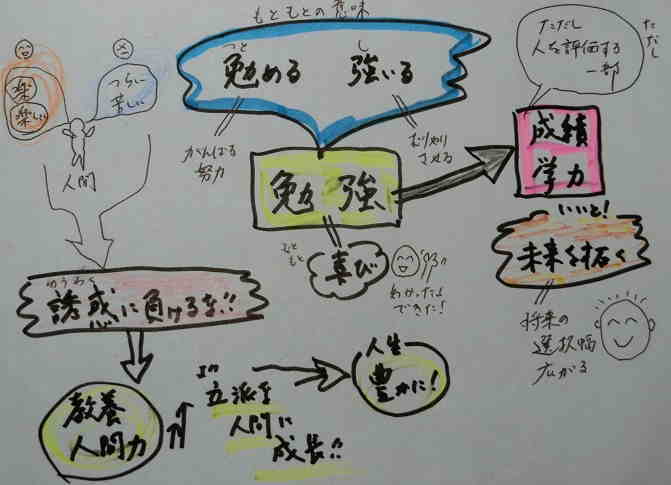 もともとの意味
つと し
勉める 強いる
がんばる
努力
むりやり
させる
勉強
もともと
喜び
わかった!
できた!
ただし
人を評価する
一部
ただし
成績
学力
いいと!
未来を拓く
将来の
選択幅
広がる
楽
楽しい
つらい
苦しい
人間
ゆうわく
誘惑に負けるな!!
教養
人間力
立派な
人間に
成長!!
人生
豊かに!